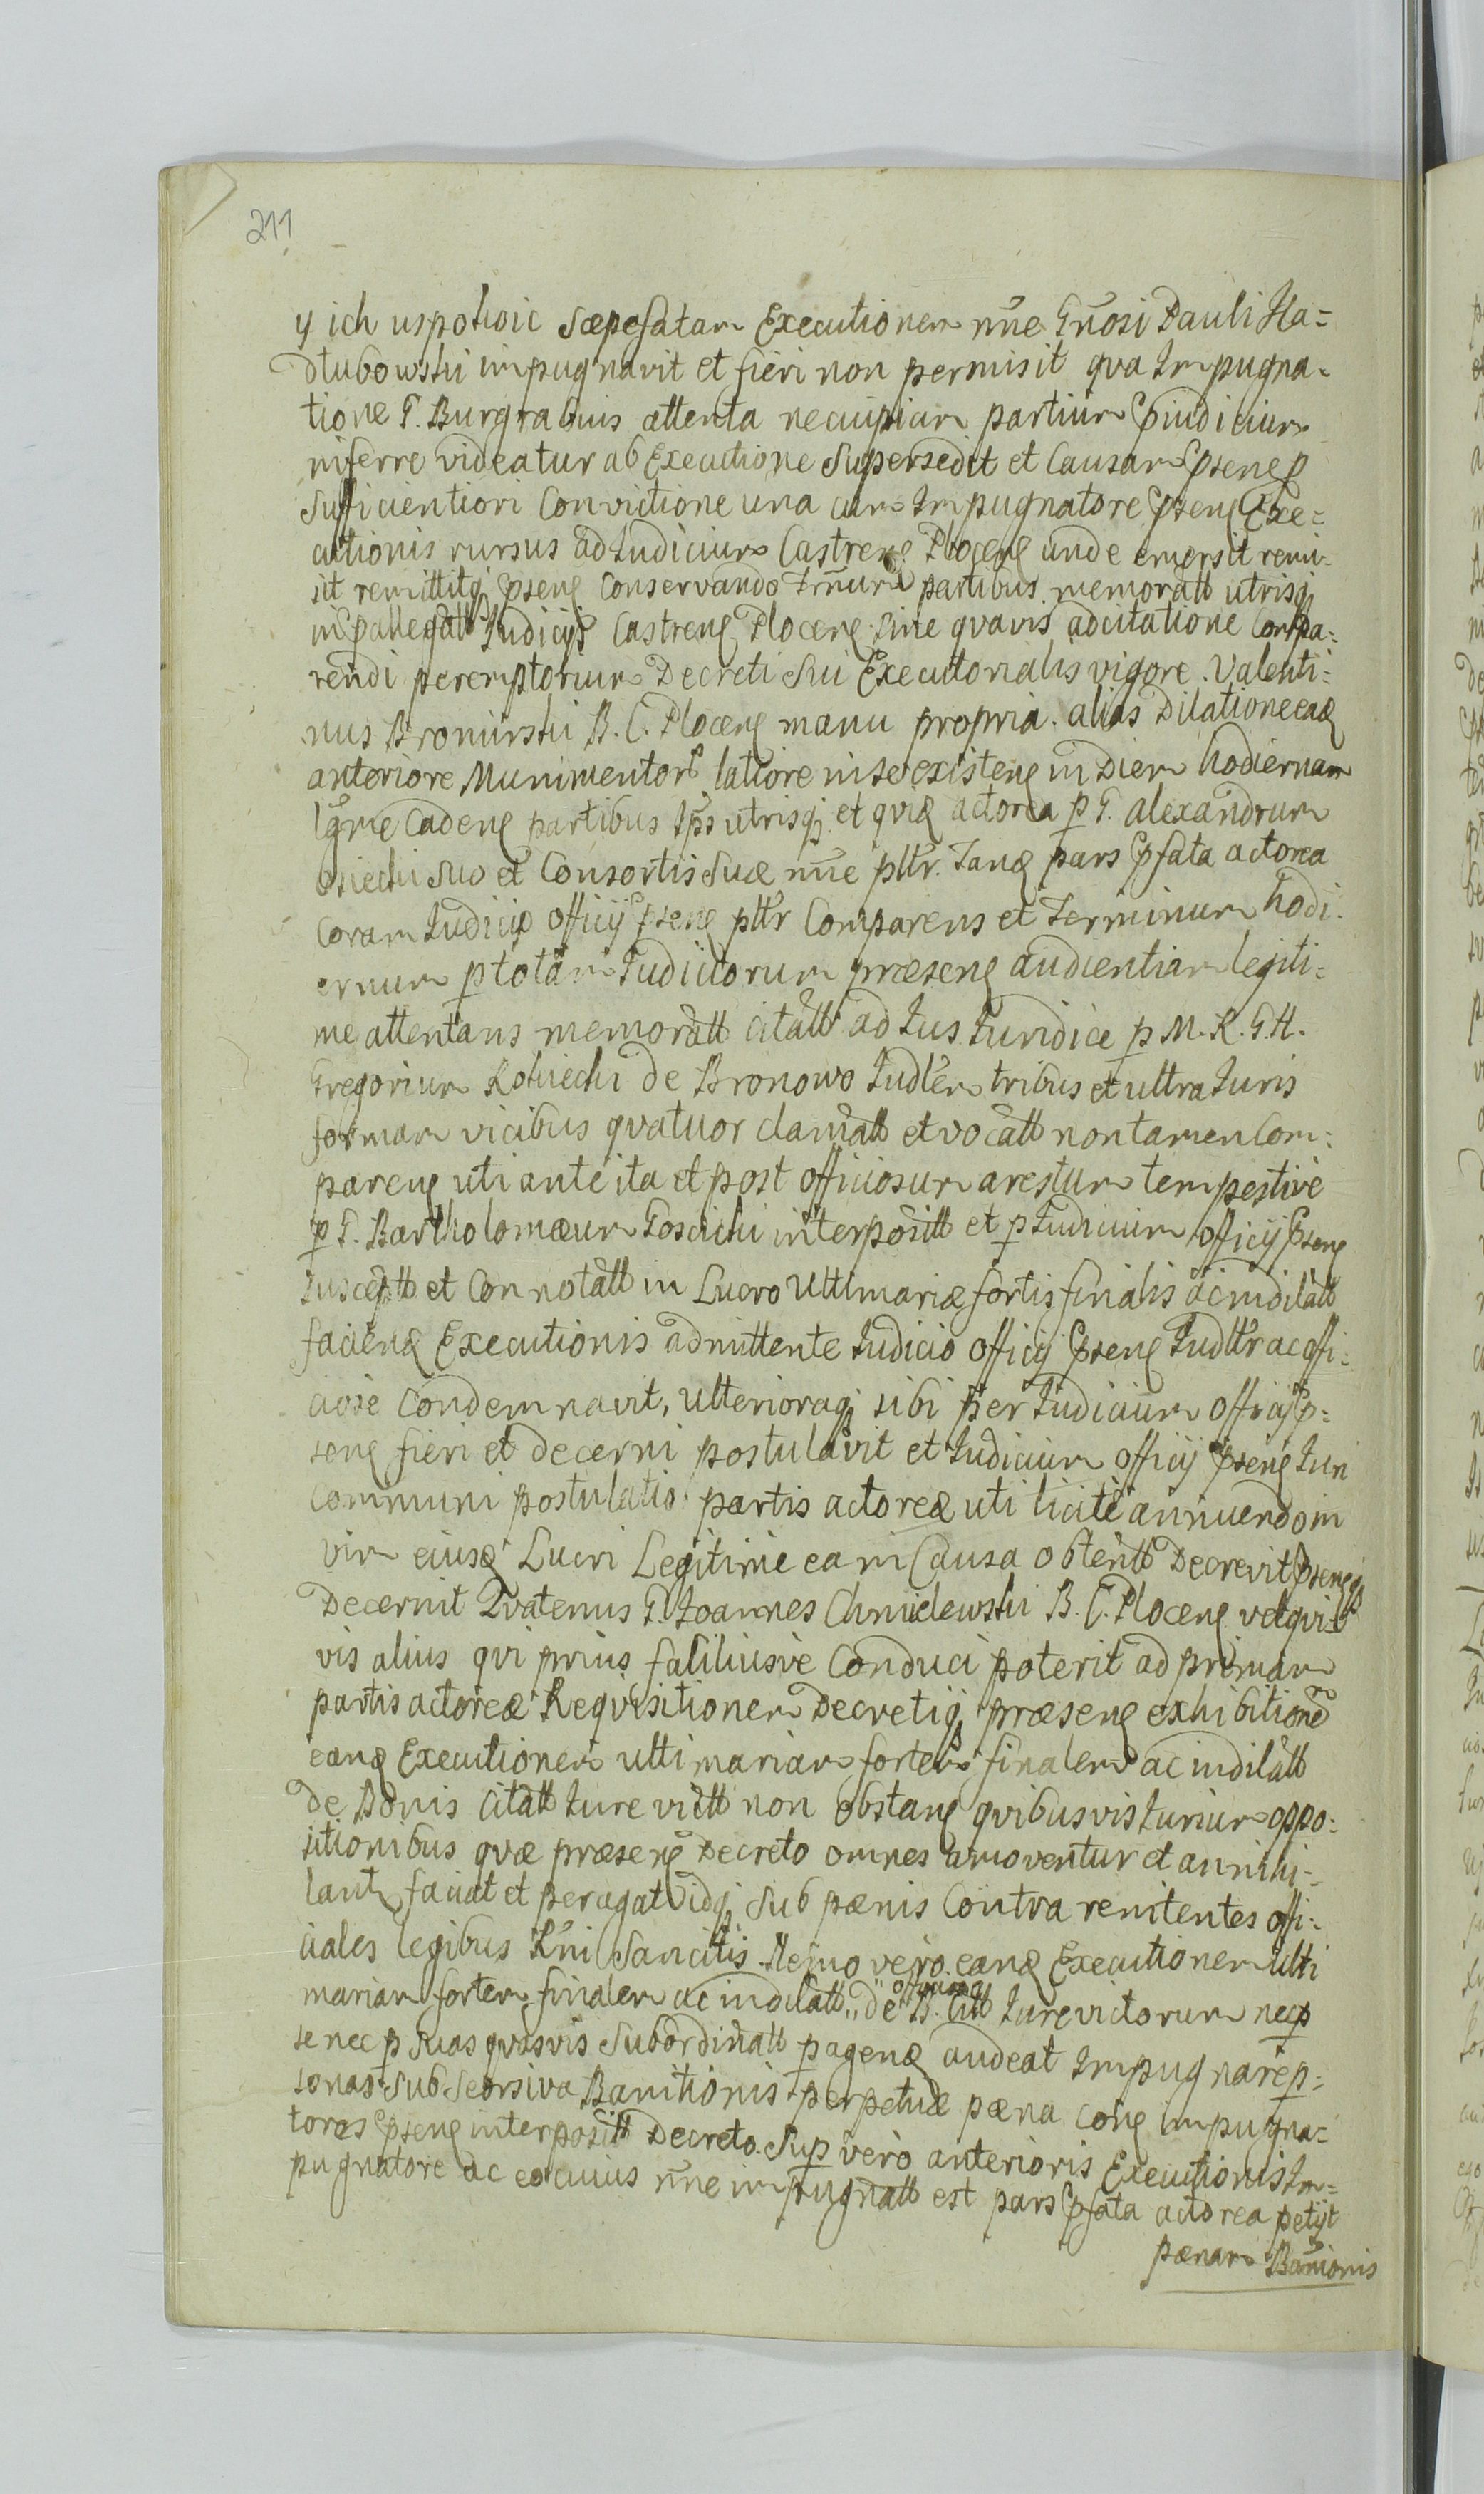 211
y ich uspokoic sæpefatam Executionem nne Gnosi Pauli Ha=
dłubowski impugnavit et fieri non permisit qva Impugna=
tione G. Burgrabius attenta ne cuipiam partium pjudicium
inferre videatur ab Executione Supersedit et Causam psene p
Sufficientiori Convictione una cum Impugnatore psene Exe=
cutionis rursus ad Iudicium Castrene Plocene unde emersit remi=
sit remittitq psene Conservando Trnum partibus memoratt utrisq
in pallegatt Iudicijs Castrene Plocene sine qvavis adcitatione Compa=
rendi peremptorium Decreti Sui Executorialis vigore. Valenti=
nus Bromirski B. C. Plocene manu propria. alias Dilatione eaq
anteriore Munimentor latiore in se existene in Diem hodiernam
lgme Cadene partibus Ips utrisq et qvia actorea p G. Alexandrum
Osiecki suo et Consortis suæ nne pltr. Tanq pars pfata actorea
Coram Iudicio officij psene pltr Comparens et Terminum hodi=
ernum p totam Iudiciorum præsene audientiam legiti=
me attentans memoratt citatt ad Ius Iuridice p M. R. G. H.
Gregorium Rokicki de Bronowo Iudlem tribus et ultra Iuris
formam vicibus qvatuor clamatt et vocatt non tamen Com=
parene uti ante ita et post officiosum arestum tempestive
p G. Bartholomæum Goscicki interpositt et p Iudicium officij psene
susceptt et Connotatt in Lucro Ultimariæ fortis finalis ac indilatt
faciene Executionis admittente Iudicio officij psene Iudltr ac offi=
ciose Condemnavit, ulterioraq sibi per Iudicium officij p=
sene fieri et decerni postulavit et Iudicium officij psene Iuri
Communi postulatio partis actoreæ uti licite annuendo in
vim eiusq Lucri Legitime ea in Causa obtentt Decrevit psene q
Decernit Qvatenus G. Ioannes Chmielewski B. C. Plocene vel qvi=
vis alius qvi prius faciliusve Conduci poterit ad primam
partis actoreæ Reqvisitionem Decretiq præsene exhibitione
eanq Executionem ultimariam fortem finalem ac indilatt
de Bonis Citatt Iure victt non obstane qvibusvis Iurium oppo=
sitionibus qvæ præsene Decreto omnes amoventur et annihi=
lantr, faciat et peragat idq sub pænis Contra renitentes offi=
ciales legibus Rni Sancitis. Nemo vero eanq Executionem Ulti
mariam fortem finalem ac indilatt de B. Citt Iurevictorum nec p
se nec p suas qvasvis Subordinatt pagenq audeat Impugnare p=
sonas Sub Seorsiva Banitionis perpetuæ pæna Cone impugna=
tores psene interpositt Decreto. Sup vero anterioris Executionis Im=
pugnatore ac eo cuius nne impugnatt est pars pfata actorea petijt
pænam Banionis